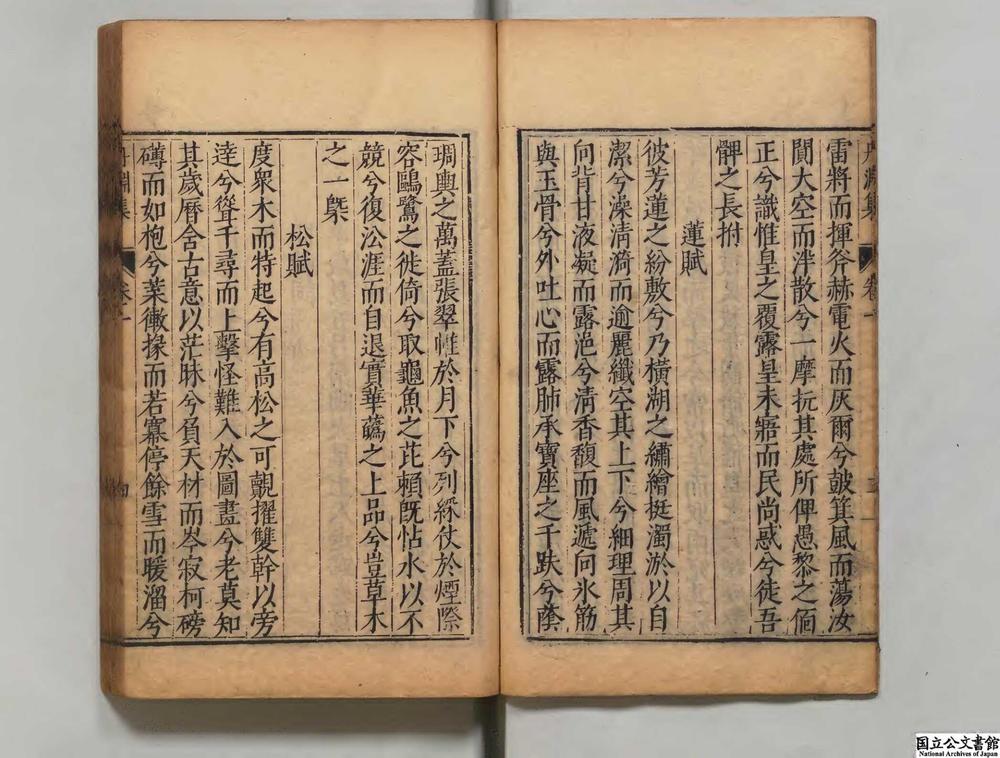 雷將而揮斧赫電火而灰爾兮皷箕風而蕩汝
閴大空而泮散兮一摩抗其處所俾愚黎之佪
正兮識惟皇之覆露皇未寤而民尚惑兮徒吾
髀之長拊
蓮賦
彼芳蓮之紛敷兮乃橫湖之繡繪挺濁淤以自
潔兮澡清漪而逾麗纖空其上下兮細理周其
向背甘液凝而露浥兮清香馥而風遞冋氷筋
與玉骨兮外吐心而露肺承寶座之千趺兮蔭
琱輿之萬蓋張翠帷於月下兮列綵仗於煙際
容鷗鷺之徙倚兮取龜魚之芘賴旣怗水以不
競兮復㳂涯而自退實華蘤之上品兮豈草木
之一槩
松賦
度衆木而特起兮有高松之可覿擢雙幹以旁
逹兮聳千尋而上擊怪難入於圖畫兮老莫知
其歲曆含古意以茫昧兮負天材而岑寂柯磅
礡而如枹兮葉㯙㩳而若寡停餘雪而暖溜兮
丹淵集
卷一
四
国立公文書館
National Archives of Japan